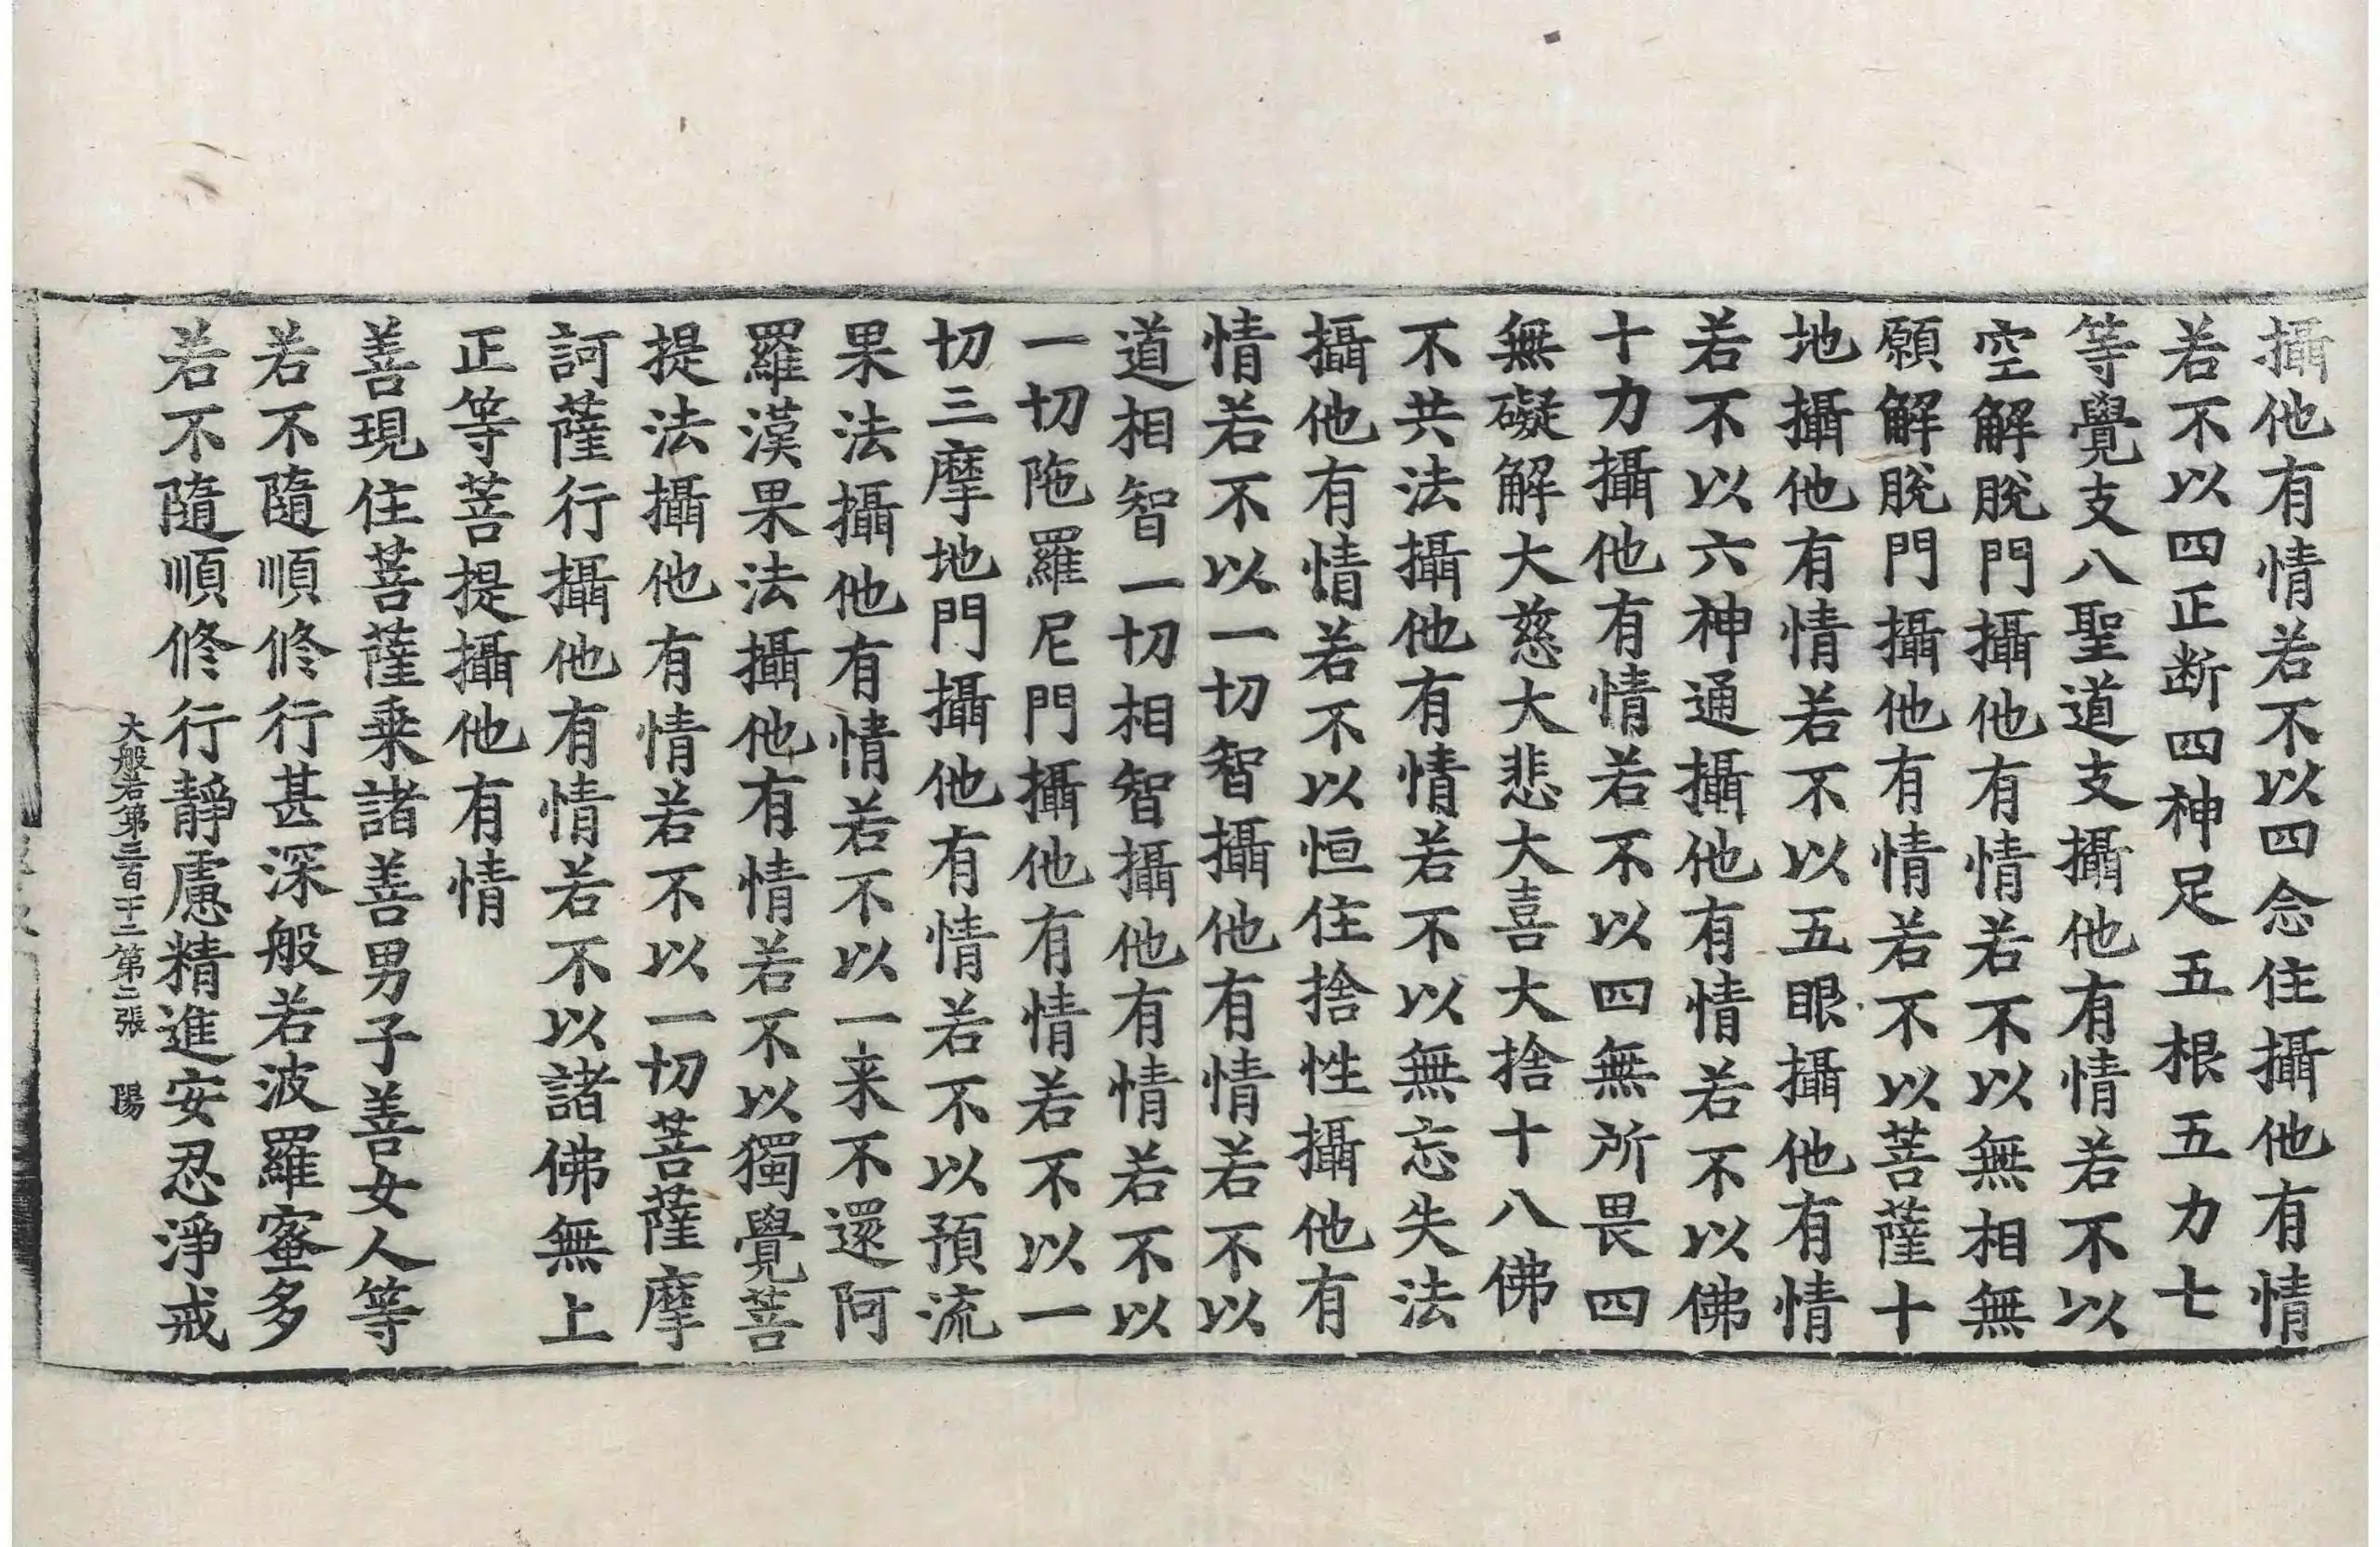 攝他有情若不以四念住攝他有情
若不以四正断四神足五根五力七
等覺支八聖道支攝他有情若不以
空解脫門攝他有情若不以無相無
願解脫門攝他有情若不以菩薩十
地攝他有情若不以五眼攝他有情
若不以六神通攝他有情若不以佛
十力攝他有情若不以四無所畏四
無礙解大慈大悲大喜大捨十八佛
不共法攝他有情若不以無忘失法
攝他有情若不以恒住捨性攝他有
情若不以一切智攝他有情若不以
道相智一切相智攝他有情若不以
一切陁羅尼門攝他有情若不以一
切三摩地門攝他有情若不以預流
果法攝他有情若不以一来不還阿
羅漢果法攝他有情若不以獨覺菩
提法攝他有情若不以一切菩薩摩
訶薩行攝他有情若不以諸佛無上
正等菩提攝他有情
善現住菩薩乗諸善男子善女人等
若不隨順修行甚深般若波羅蜜多
若不隨順修行靜慮精進安忍淨戒
大般若第三百二十二第二張 陽